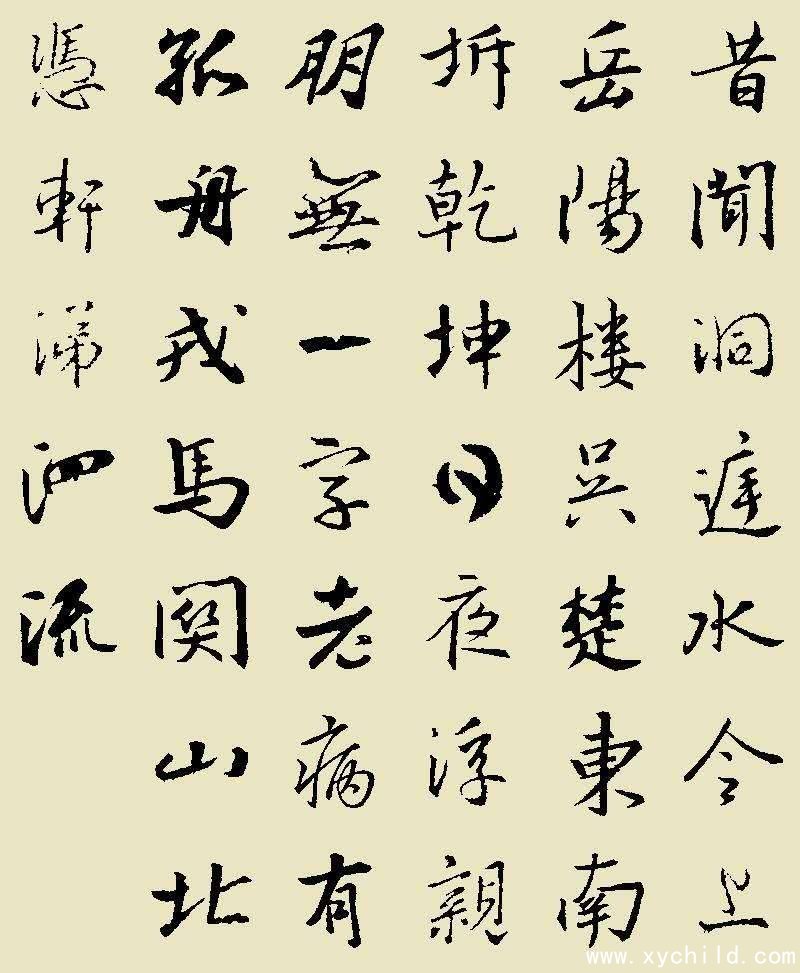 昔聞洞庭水今上
岳陽樓吳楚東南
坼乾坤日夜浮親
朋無一字老病有
孤舟戎馬関山北
憑軒涕泗流
www.xychild.com